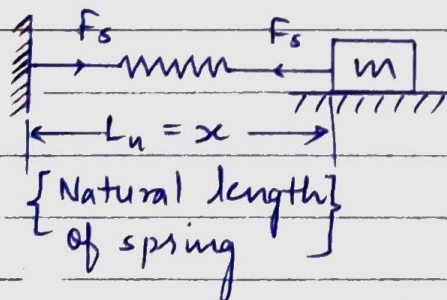 Fs Fs
m
Ln = x
{Natural length}
of spring